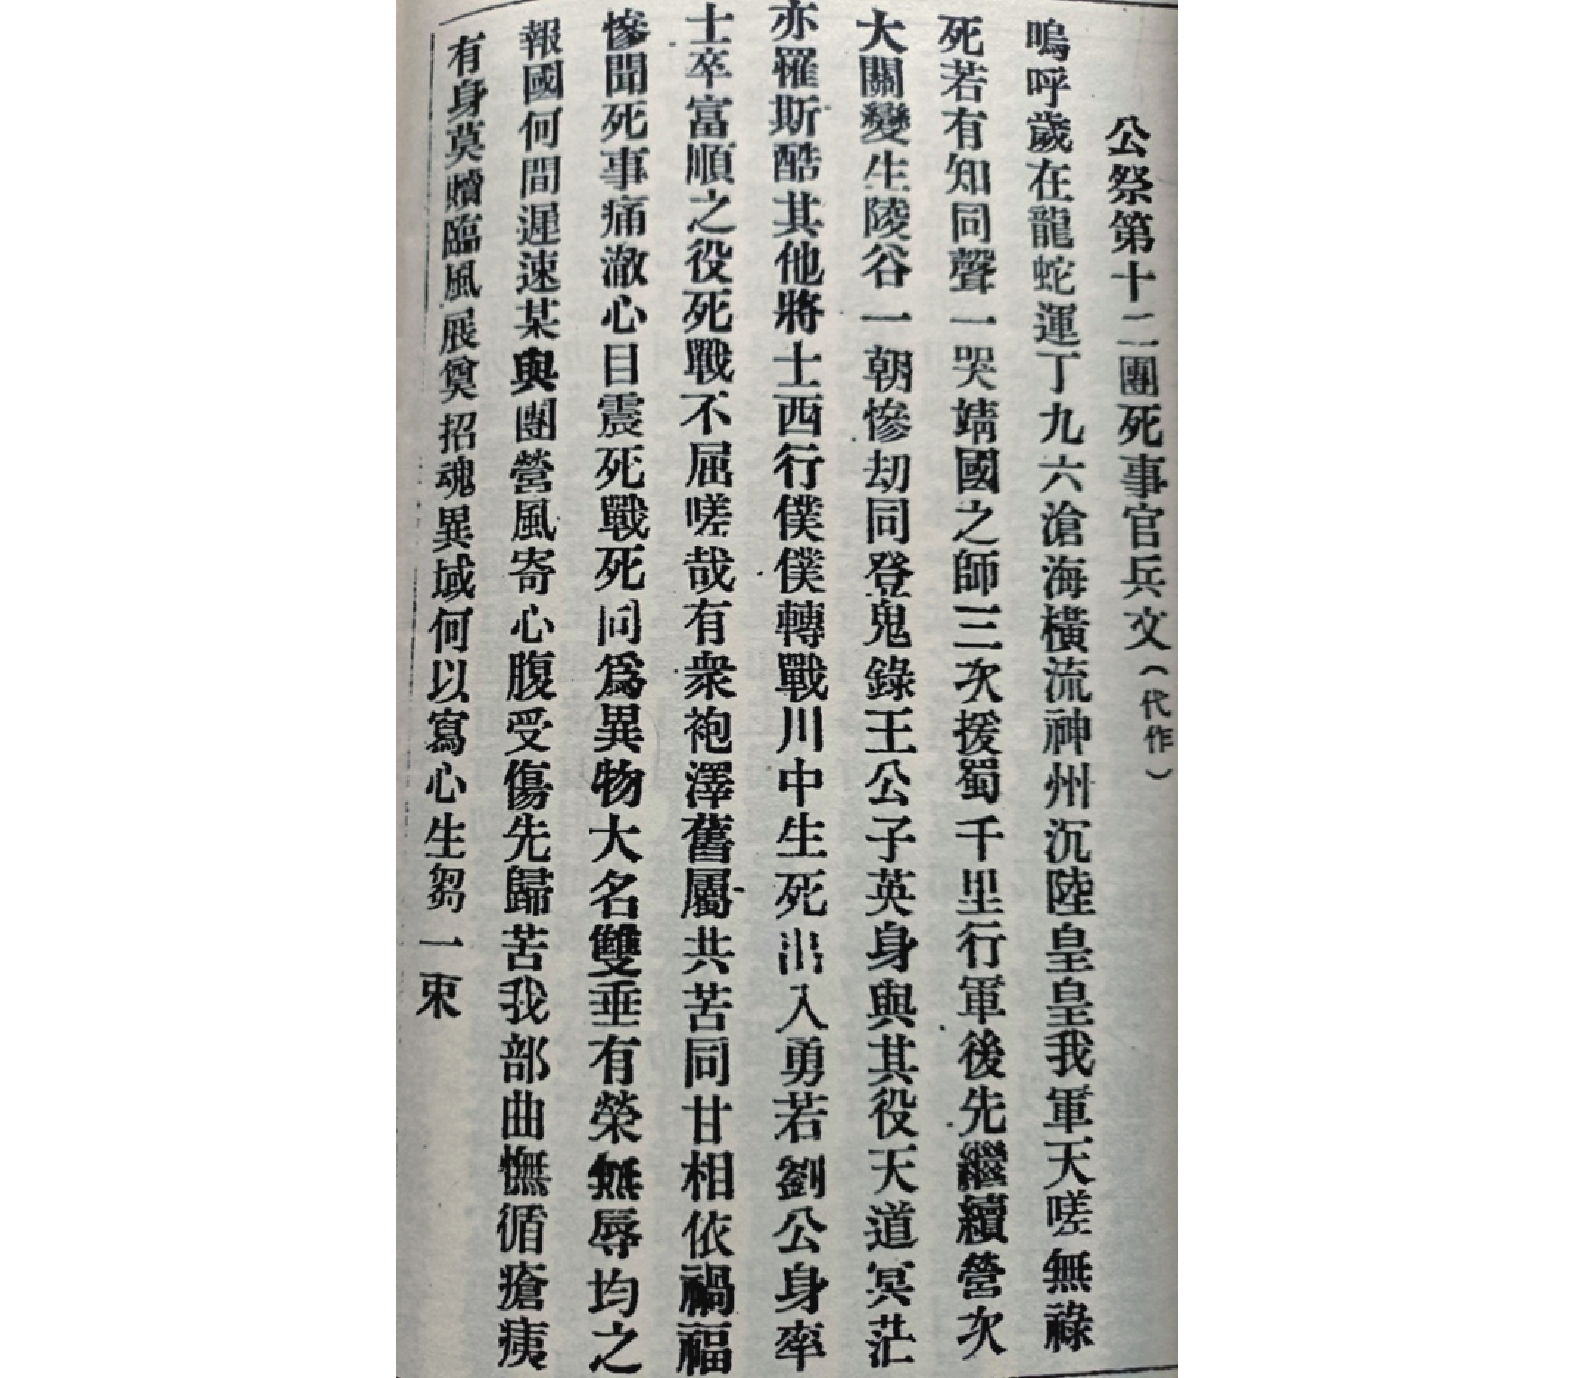 公祭第十二團死事官兵文（代作）
嗚呼歲在龍蛇運丁九六滄海橫流神州沉陸皇皇我軍天嗟無祿
死若有知同聲一哭靖國之師三次援蜀千里行軍後先繼續營次
大關變生陵谷一朝慘劫同登鬼錄王公子英身與其役天道冥茫
亦罹斯酷其他將士西行僕僕轉戰川中生死出入勇若劉公身率
士卒富順之役死戰不屈嗟哉有衆袍澤舊屬共苦同甘相依禍福
慘聞死事痛澈心目震死戰死同爲異物大名雙垂有榮無辱均之
報國何間遲速某與團營風寄心腹受傷先歸苦我部曲憮循瘡痍
有身莫贖臨風展奠招魂異域何以寫心生芻一束